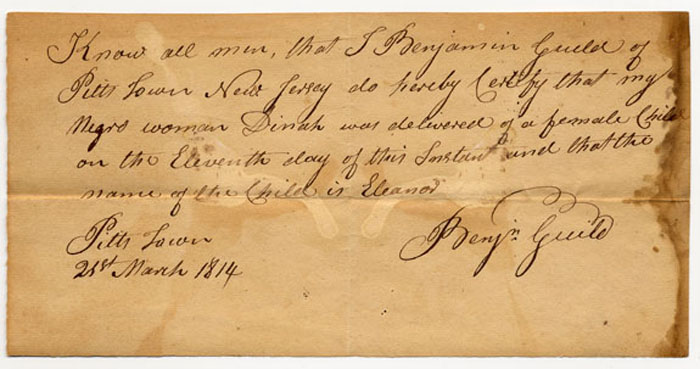 Know all men, that I Benjamin Guild of
Pitts Town New Jersey do hereby Certify that my
Negro woman Dinah was delivered of a female Child
on the Eleventh day of this Instant and that the
name of the Child is Eleanor
Pitts Town
21st March 1814
Benjn Guild